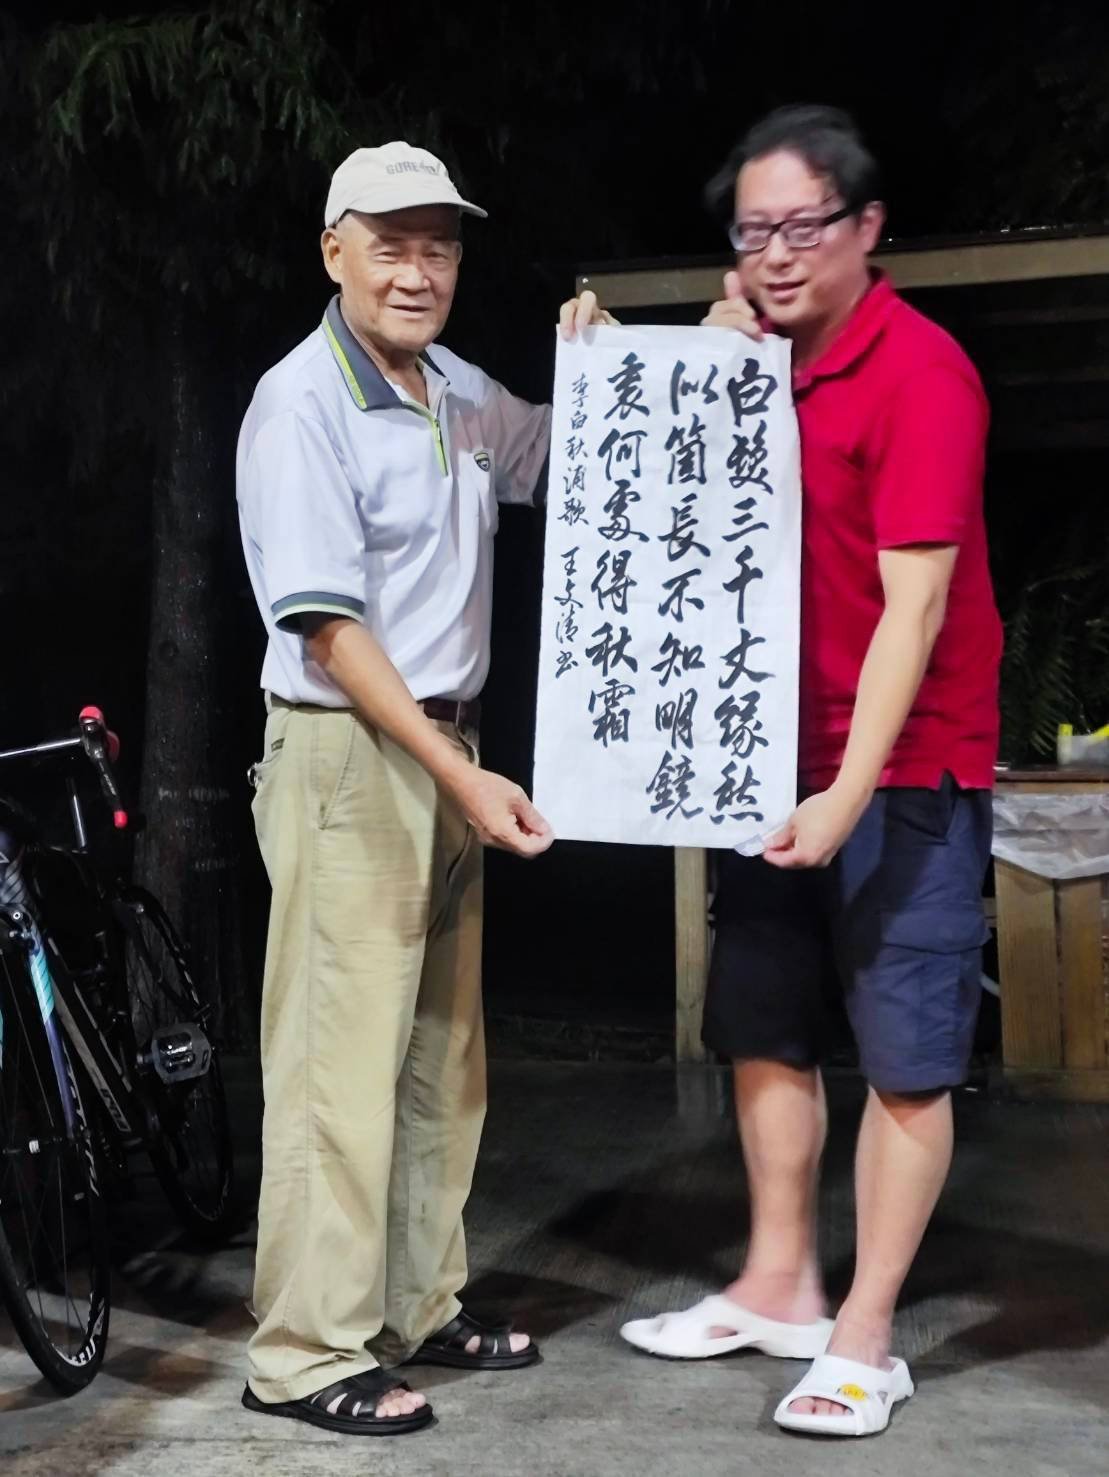 白髮三千丈緣愁
似箇長不知明鏡
裏何處得秋霜
李白秋浦歌 王文清書